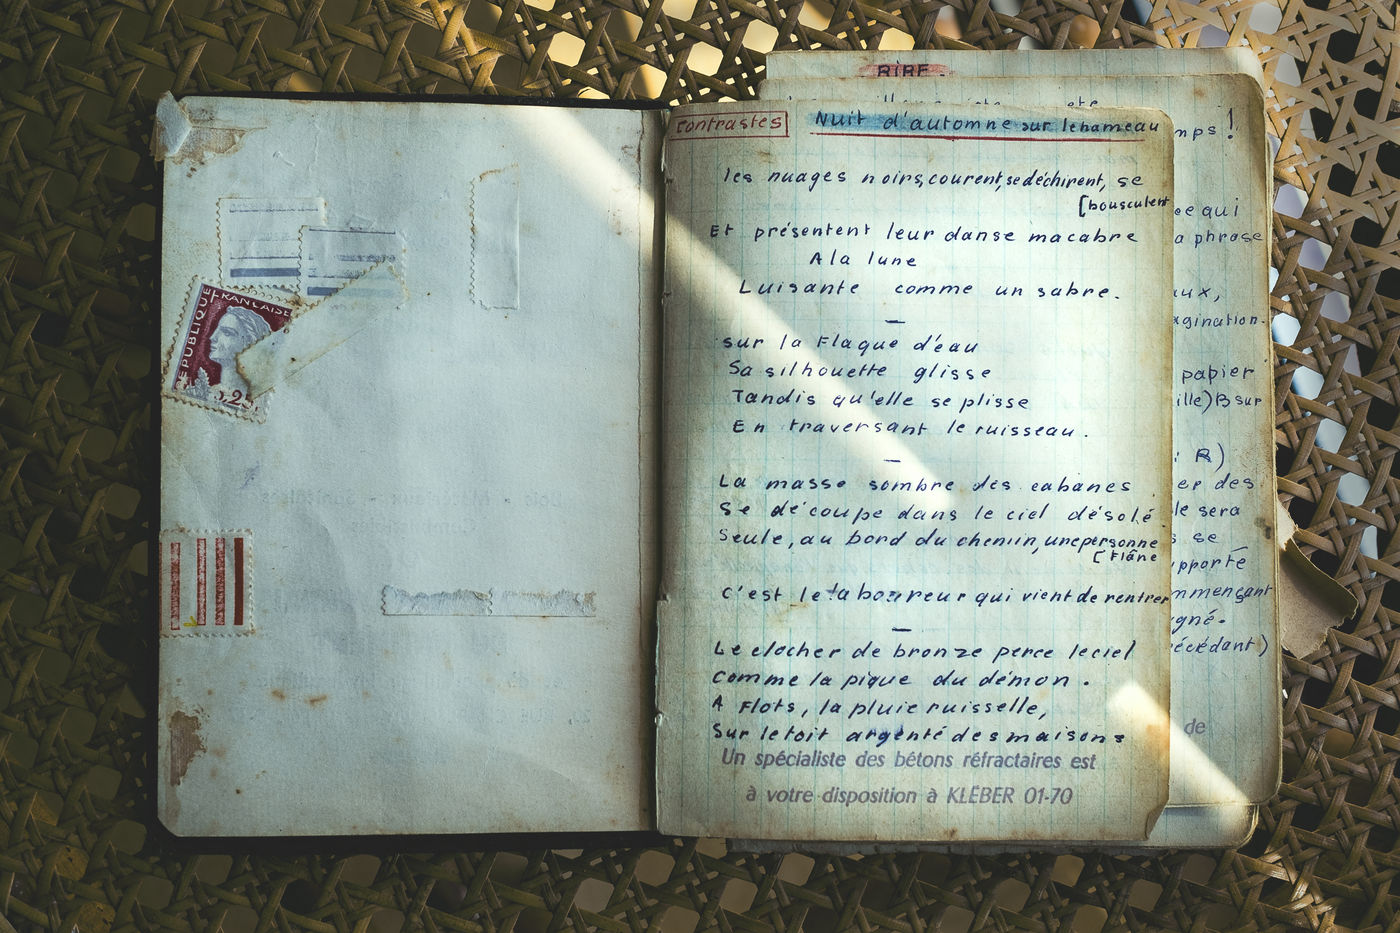 RÉPUBLIQUE FRANÇAISE
0,25
RIRE.
contrastes Nuit d'automne sur le hameau
les nuages noirs, courent, se déchirent, se
[bousculent
Et présentent leur danse macabre
A la lune
Luisante comme un sabre.
—
sur la Flaque d'eau
Sa silhouette glisse
Tandis qu'elle se plisse
En traversant le ruisseau.
—
La masse sombre des cabanes
Se découpe dans le ciel désolé
Seule, au bord du chemin, une personne
[Flâne
c'est le laboureur qui vient de rentrer
—
Le clocher de bronze perce le ciel
Comme la pique du démon.
A Flots, la pluie ruisselle,
Sur le toit argenté des maisons
Un spécialiste des bétons réfractaires est
à votre disposition à KLÉBER 01-70
mps !
qui
a phrase
aux,
agination.
papier
ille) B sur
: R)
er des
le sera
se
pporté
mmençant
gné.
écédant)
de